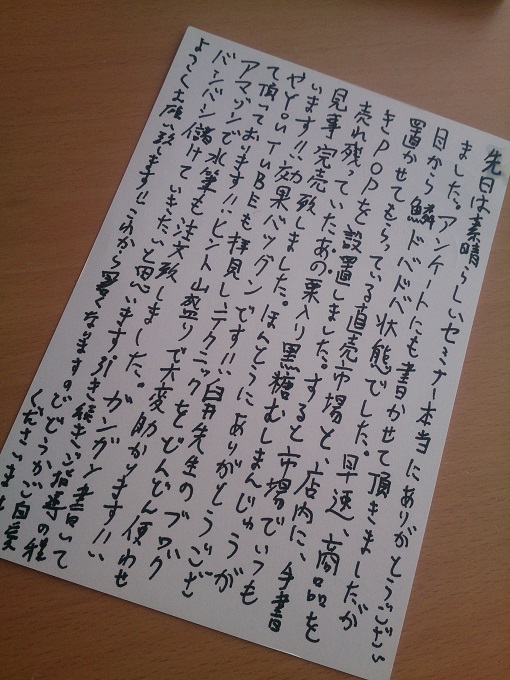 先日は素晴らしいセミナー本当にありがとうござい
ました。アンケートにも書かせて頂きましたが
目から鱗ドバドバ状態でした。早速、商品を
置かせてもらっている直売市場と、店内に、手書
きPOPを設置しました。すると市場でいつも
売れ残っていたあの栗入り黒糖むしまんじゅうが
見事完売致しました。ほんとうにありがとうござ
います!!効果バツグンです!!臼井先生のブログ
やYouTuBEも拝見しテクニックをどんどん使わせ
て頂いております!!ヒント山盛りで大変助かります!!
アマゾンで水筆も注文致しました。ガンガン書いて
バンバン儲けていきたいと思います。引き続きご指導の程
よろしくお願い致します!!これから暑くなりますのでどうかご自愛
くださいませ